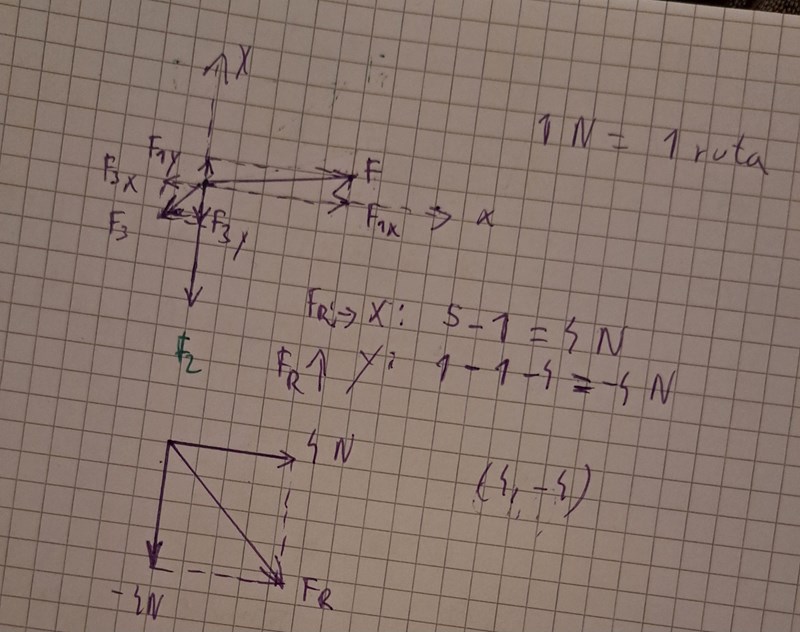 Y
1 N = 1 ruta
F1y
F
F3x
F3
F3y
F1x
x
F2
FR → X: 5 - 1 = 4 N
FR ↑ Y: 1 - 1 - 4 = -4 N
4 N
(4, -4)
-4N
FR